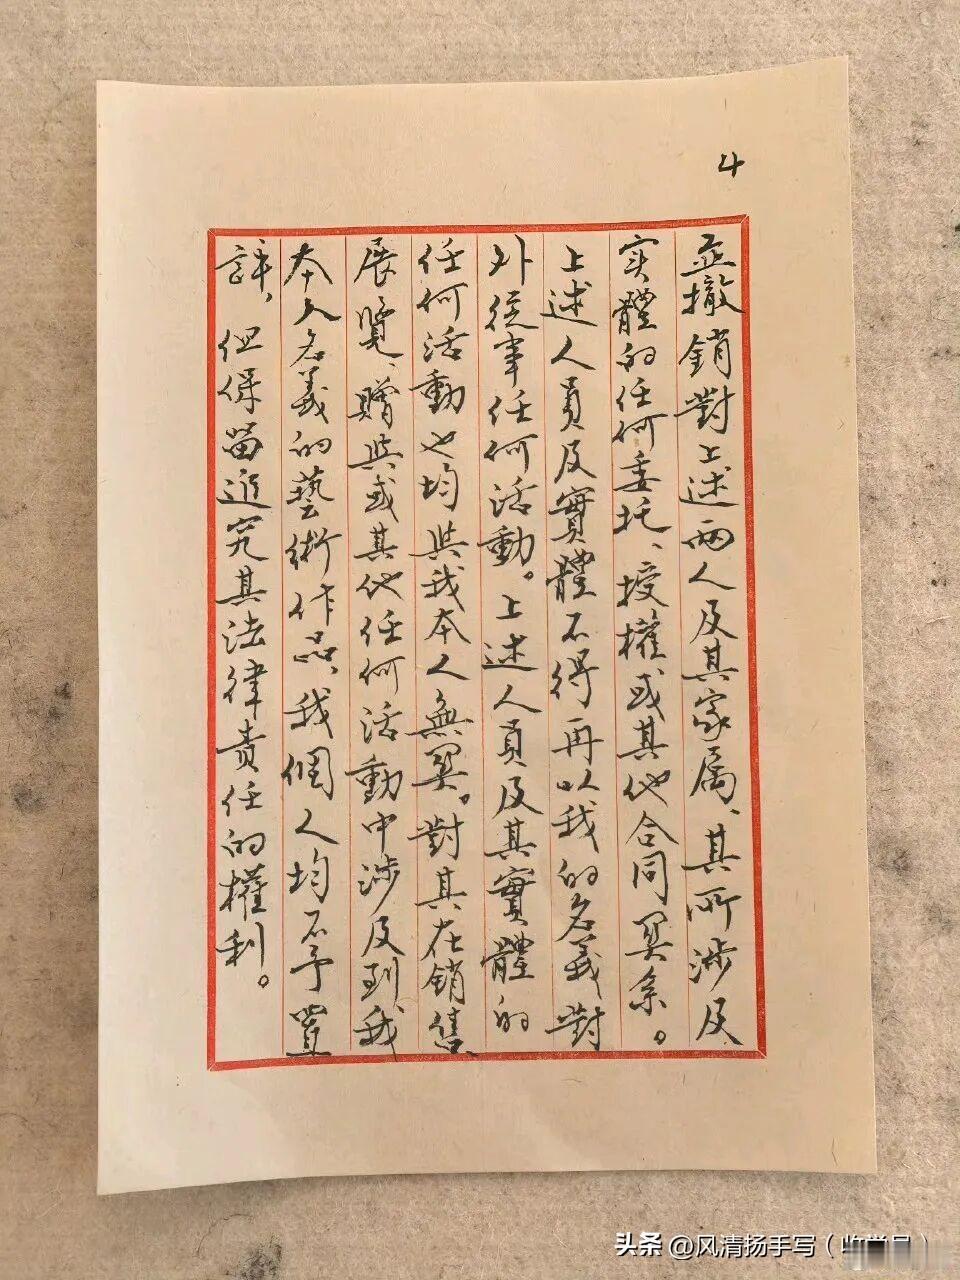 4
並撤銷對上述两人及其家属、其所涉及
实體的任何委托、授權或其他合同関系。
上述人員及實體不得再以我的名義對
外從事任何活動。上述人員及其實體的
任何活動也均與我本人無関。對其在銷售、
展覽、贈與或其他任何活動中涉及到我
本人名義的藝術作品、我個人均不予置
評，但保留追究其法律責任的權利。
头条 @风清扬手写（收学员）